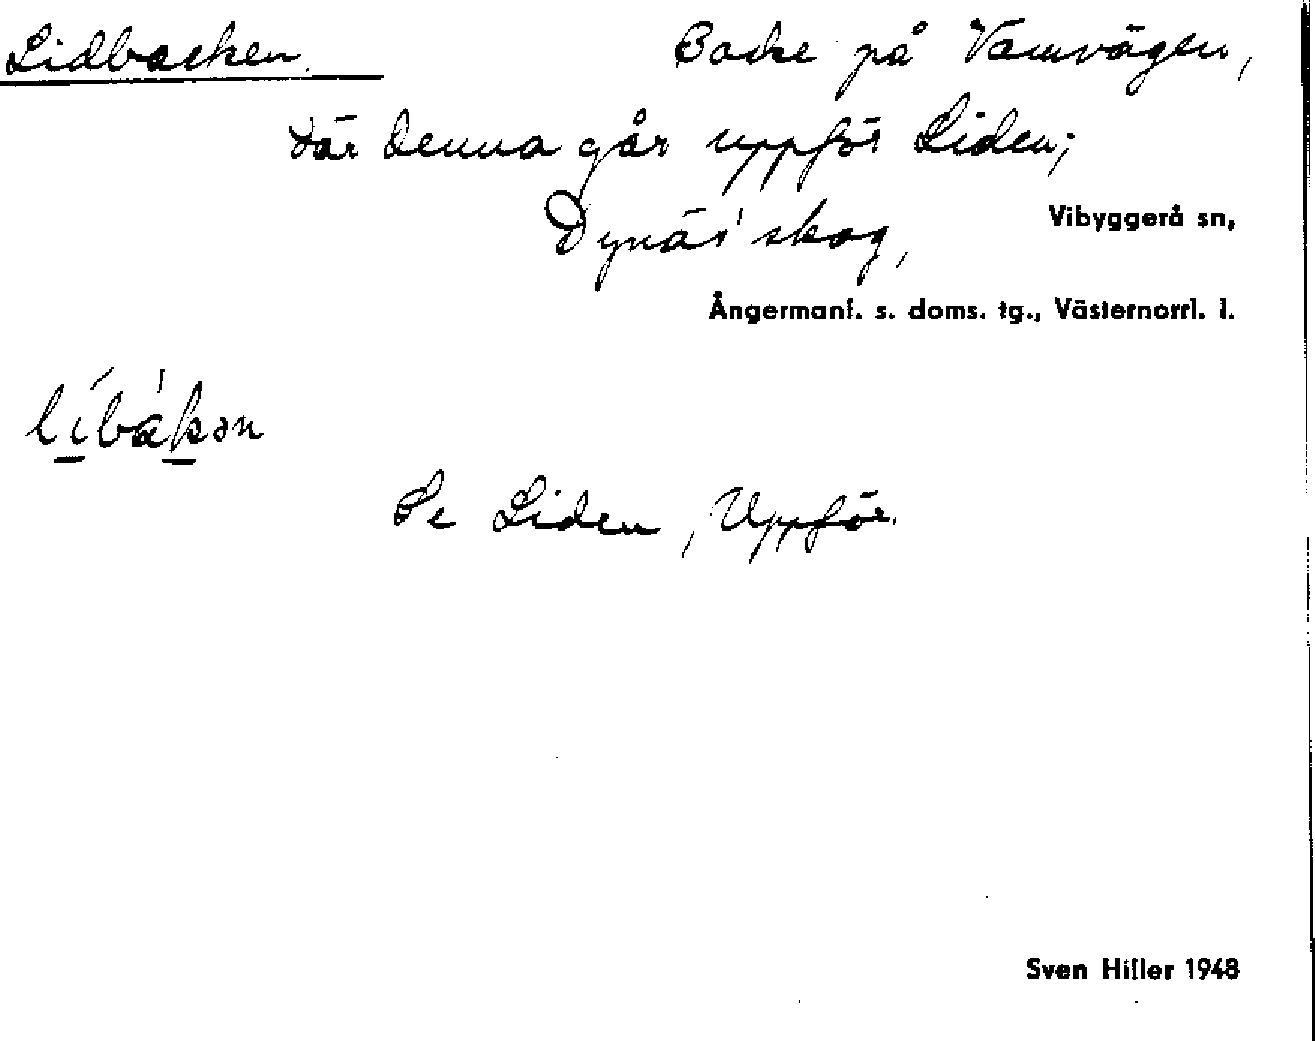 Lidbacken. Backe på Vamvägen,
där denna går uppför Liden;
Dynäs' skog, Vibyggerå sn,
Ångermanl. s. doms. tg., Västernorrl. l.
Se Liden, Uppför.
Sven Hiller 1948